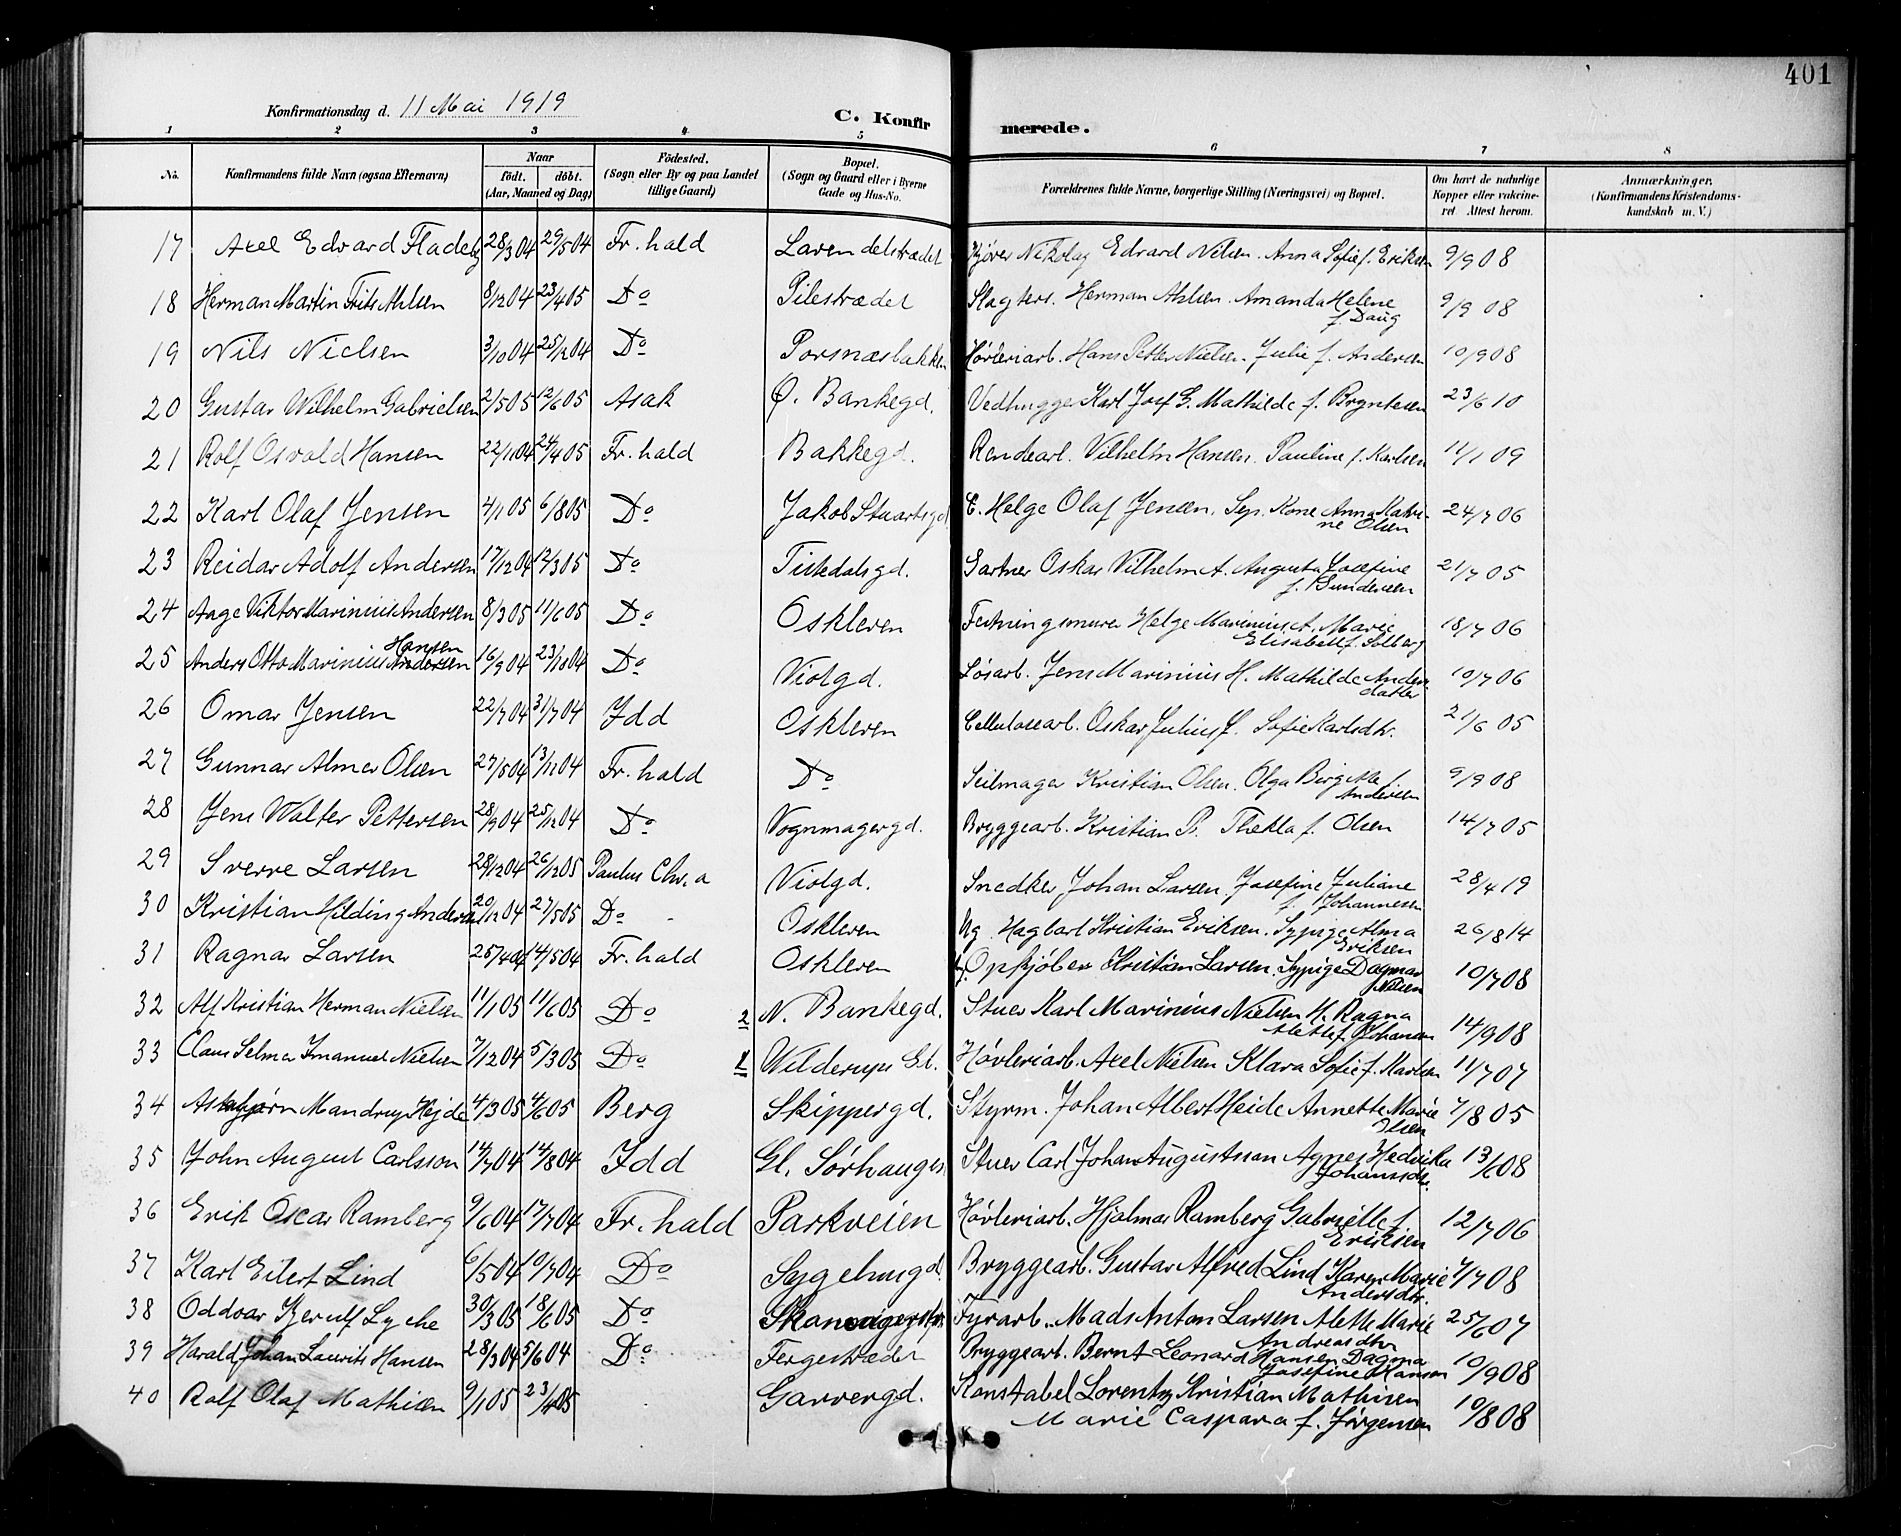 401
Konfirmationsdag d. 11 Mai 1919
C. Konfirmerede.
1 2 3 4 5 6 7 8
No. Konfirmandens fulde Navn (ogsaa Efternavn) Naar födt. döbt. (Aar, Maaned og Dag) Födested. (Sogn eller By og paa Landet tillige Gaard) Bopæl. (Sogn og Gaard eller i Byerne Gade og Hus-No. Forældrenes fulde Navne, borgerlige Stilling (Næringsvei) og Bopæl. Om havt de naturlige Kopper eller vakcineret. Attest herom. Anmærkninger. (Konfirmandens Kristendomskundskab m. V.)
17 Axel Edvard Fladeby 28/3 04 29/5 04 Fr.hald Lavendelstrædet Kjører Nikolay Edvard Nilsen. Anna Sofie f. Eriksen 9/9 08
18 Herman Martin Frits Ahlsen 8/12 04 23/4 05 Do Pilestrædet Slagters. Herman Ahlsen. Amanda Helene f. Daug 9/9 08
19 Nils Nielsen 3/10 04 25/12 04 Do Porsnæsbakken Høvleriarb. Hans Petter Nielsen. Julie f. Andersen 10/9 08
20 Gustav Wilhelm Gabrielsen 2/5 05 12/6 05 Asak Ø. Bankegd. Vedhugger Karl Josf G. Mathilde f. Bryntesen 23/6 10
21 Rolf Osvald Hansen 22/11 04 24/4 05 Fr.hald Bakkegd. Rendearb. Vilhelm Hansen. Pauline f. Karlsen 11/1 09
22 Karl Olaf Jensen 4/1 05 6/8 05 Do Jakob Stuartsgd E. Helge Olaf Jensen. Sep. Kone Anna Katrine Olsen 24/7 06
23 Reidar Adolf Andersen 17/12 04 12/3 05 Do Tistedalsgd. Gartner Oskar Vilhelm A. Augusta Josefine f. Gundersen 21/7 05
24 Aage Viktor Marinius Andersen 8/3 05 11/6 05 Do Oskleven Festningsmurer Helge Marinius A. Marie Elisabeth f. Solberg 18/7 06
25 Anders Otto Marinius Andersen Hansen 16/9 04 23/10 04 Do Violgd. Løsarb. Jens Marinius H. Mathilde Andersdatter 10/7 06
26 Omar Jensen 22/7 04 31/7 04 Idd Oskleven Cellulosearb. Oskar Julius J. Sofie Karlsdtr. 21/6 05
27 Gunnar Almer Olsen 27/5 04 13/11 04 Fr.hald Do Seilmager Kristian Olsen. Olga Birgitte f. Andersen 9/9 08
28 Jens Walter Pettersen 28/9 04 25/12 04 Do Vognmagergd. Bryggearb. Kristian P. Thekla f. Olsen 14/7 05
29 Sverre Larsen 28/12 04 26/12 05 Paulus Chr.a Violgd. Snedker Johan Larsen Josefine Juliane f. Johannesen 28/4 19
30 Kristian Hilding Andersen 20/12 04 27/5 05 Do - Oskleven Ug. Hagbart Kristian Eriksen. Sypige Alma Eriksen 26/8 14
31 Ragnar Larsen 25/4 04 14/5 04 Fr.hald Oskleven Opkjøber Kristian Larsen. Sypige Dagmar Nilsen 10/7 08
32 Alf Kristian Herman Nielsen 11/1 05 11/6 05 Do 2 N. Bankegd. Stuer Karl Marinius Nielsen H. Ragna Mette f. Johansen 14/9 08
33 Claus Selmar Imanuel Nielsen 7/12 04 5/3 05 Do 1 Wilderups Gt. Høvleriarb. Axel Nielsen Klara Sofie f. Karlsen 11/7 07
34 Asbjørn Mandrup Hejde 4/3 05 4/6 05 Berg Skippergd. Styrm. Johan Albert Heide Annette Marie Olsen 7/8 05
35 John August Carlsson 14/7 04 14/8 04 Idd Gl. Sørhaugen Stuer Carl Johan Augustsson Agnes Hedvika Johansdtr. 13/6 08
36 Erik Oscar Ramberg 9/6 04 17/7 04 Fr.hald Parkveien Høvleriarb. Hjalmar Ramberg Gabrielle f. Eriksen 12/7 06
37 Karl Eilert Lind 6/5 04 10/7 04 Do Sygehusgd. Bryggearb. Gustav Alfred Lind Karen Marie Andersdtr. 7/7 08
38 Oddvar Kjerulf Lyche 30/3 05 18/6 05 Do Fyrarb. Mads Anton Larsen Alette Marie Andreasdtr 25/6 07
39 Harald Johan Laurits Hansen 28/3 04 5/6 04 Do Fergestrædet Bryggearb. Bernt Leonard Hansen Dagma Josefine Hansen 10/9 08
40 Rolf Olaf Mathisen 9/1 05 23/4 05 Garvergd. Konstabel Lorentz Kristian Mathisen Marie Caspara f. Jørgensen 10/8 08